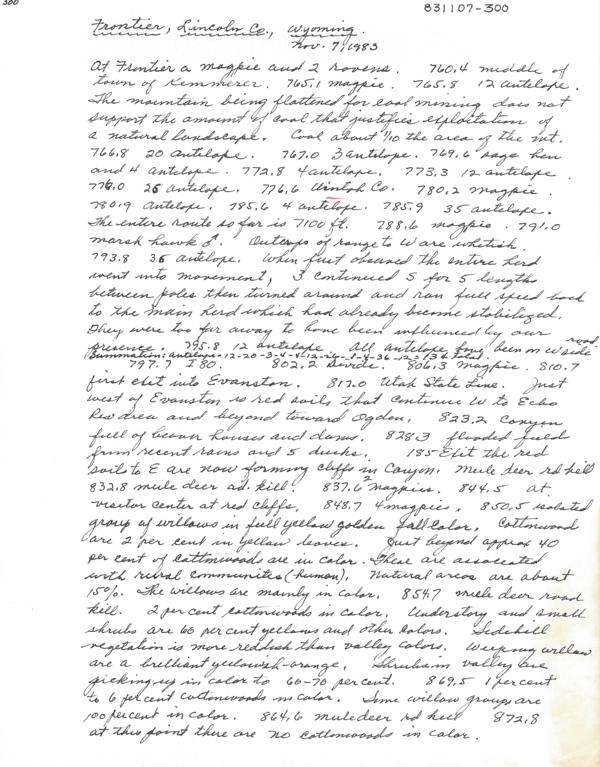 300
831107-300
Frontier, Lincoln Co., Wyoming.
Nov. 7, 1983
At Frontier a magpie and 2 ravens. 760.4 middle of
town of Kemmerer. 765.1 magpie. 765.8 12 antelope.
The mountain being flattened for coal mining does not
support the amount of coal that justifies exploitation of
a natural landscape. Coal about 1/10 the area of the mt.
766.8 20 antelope. 767.0 3 antelope. 769.6 sage hen
and 4 antelope. 772.8 4 antelope. 773.3 12 antelope.
776.0 26 antelope. 776.6 Uintah Co. 780.2 magpie.
780.9 antelope. 785.6 4 antelope. 785.9 35 antelope.
The entire route so far is 7100 ft. 788.6 magpie. 791.0
marsh hawk ♂. Outcrops of range to W are whitish.
793.8 36 antelope. When first observed the entire herd
went into movement, 3 continued S for 5 lengths
between poles then turned around and ran full speed back
to the main herd which had already become stabilized.
They were too far away to have been influenced by our
presence. 795.8 12 antelope. All antelope have been on W side road.
Summation: antelope - 12-20-3-4-4-12-26-1-4-36-12 = 134 total.
797.7 I80. 802.2 Divide. 806.3 magpie. 810.7
first exit into Evanston. 817.0 Utah State Line. Just
west of Evanston is red soils that continue W to Echo
Res area and beyond toward Ogden. 823.2 Canyon
full of beaver houses and dams. 828.3 flooded fields
from recent rains and 5 ducks. 185 Exit the red
soils to E are now forming cliffs in Canyon. Mule deer rd kill
832.8 mule deer ad. kill. 837.6 2 magpies. 844.5 at
visitor center at red cliffs. 848.7 4 magpies. 850.5 isolated
group of willows in full yellow golden fall color. Cottonwood
are 2 per cent in yellow leaves. Just beyond approx 40
per cent of cottonwoods are in color. These are associated
with rural communities (human). Natural areas are about
15%. The willows are mainly in color. 854.7 mule deer road
kill. 2 per cent cottonwoods in color. Understory and small
shrubs are 60 per cent yellows and other colors. Sidehill
vegetation is more reddish than valley colors. Weeping willow
are a brilliant yellowish-orange. Shrubs in valley are
picking up in color to 60-70 per cent. 869.5 1 percent
to 6 per cent cottonwoods in color. Some willow groups are
100 percent in color. 864.6 mule deer rd kill 872.8
at this point there are no cottonwoods in color.